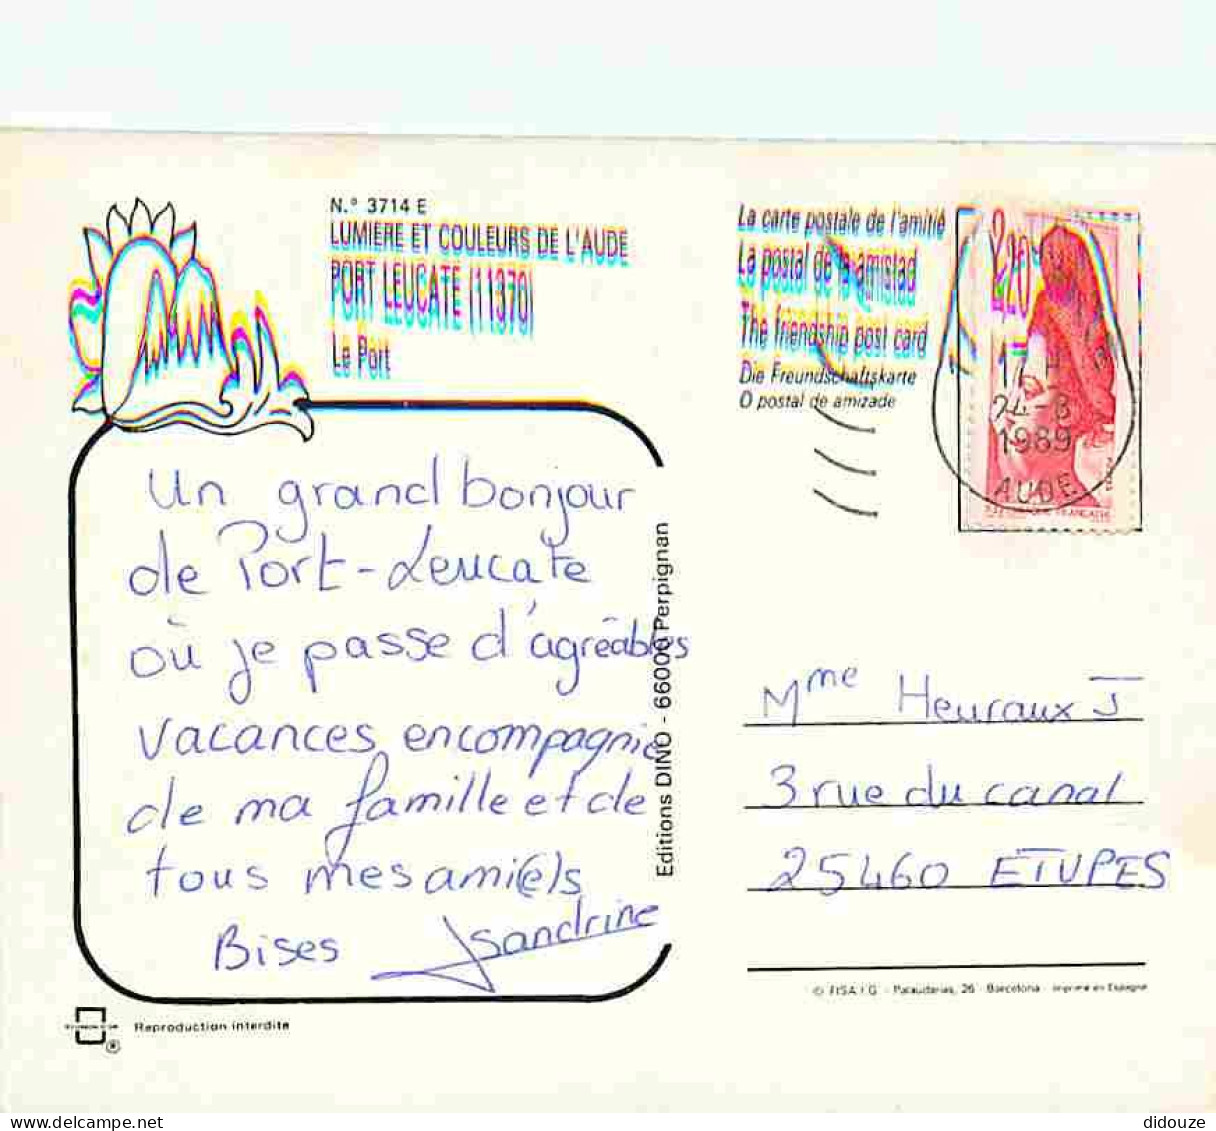 N.° 3714 E
LUMIERE ET COULEURS DE L'AUDE
PORT LEUCATE (11370)
Le Port
La carte postale de l'amitié
La postal de la amistad
The friendship post card
Die Freundschaftskarte
O postal de amizade
2,20
17 H
24-8
1989
AUDE
Un grand bonjour
de Port-Leucate
où je passe d'agréables
vacances en compagnie
de ma famille et de
tous mes ami(e)s
Bises Sandrine
Editions DINO - 66000 Perpignan
Mme Heuraux J
3 rue du canal
25460 ETUPES
© FISA I G - Palaudarias, 26 - Barcelona - Imprimé en Espagne
Reproduction interdite
®
didouze